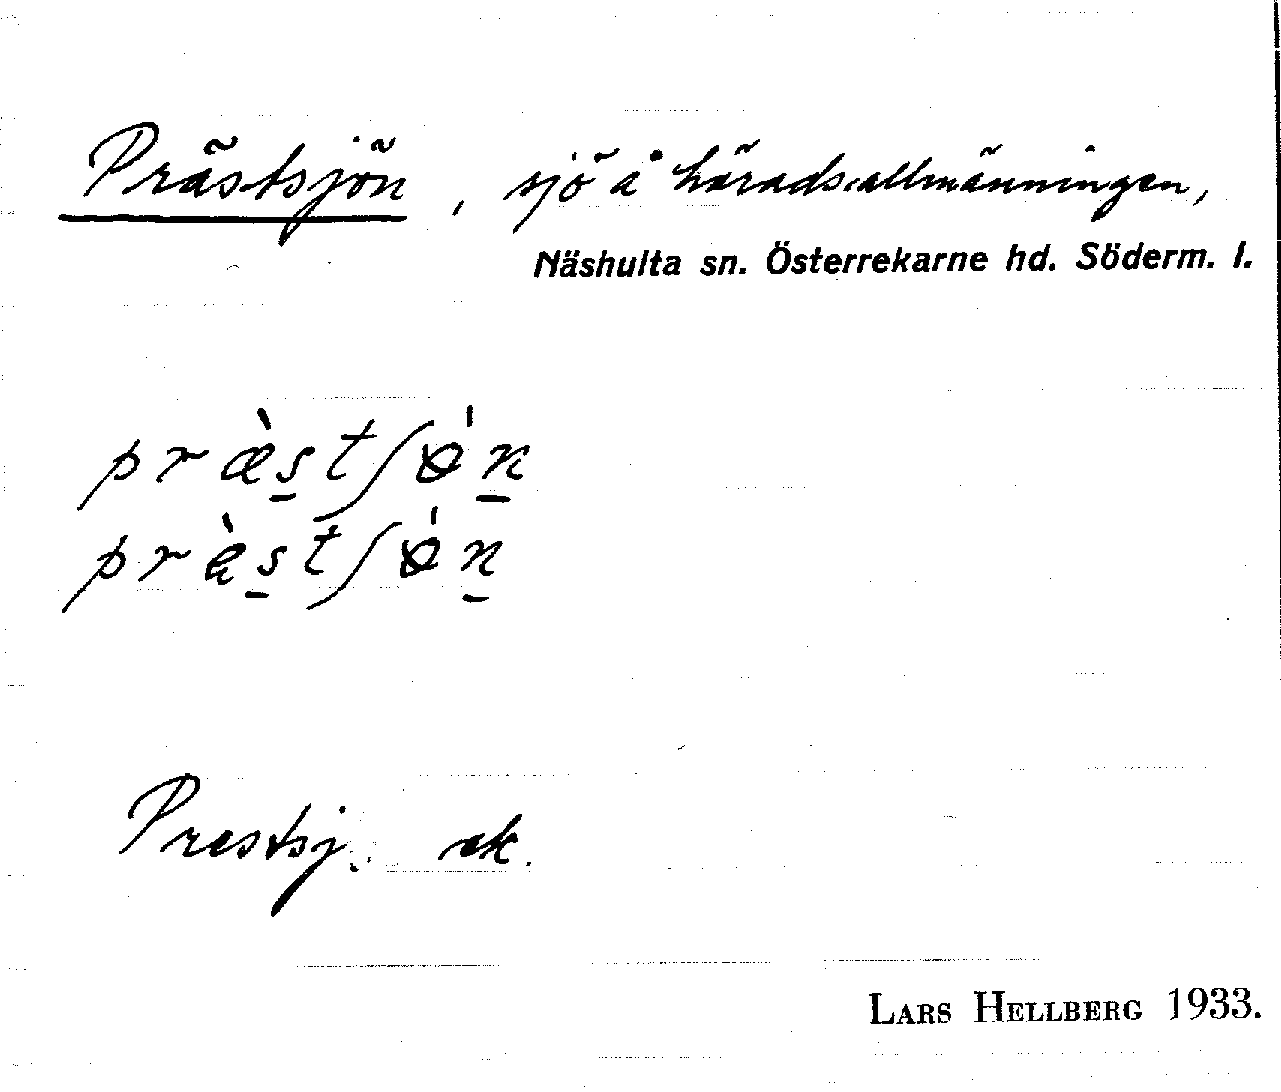 Prästsjön, sjö å häradsallmänningen,
Näshulta sn. Österrekarne hd. Söderm. l.
præ̀s̲tʃø̍n̲
prὲs̲tʃø̍n̲
Prestsj. ek.
LARS HELLBERG 1933.